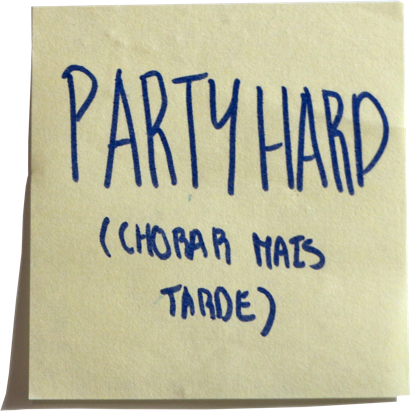 PARTY HARD
(CHORAR MAIS
TARDE)